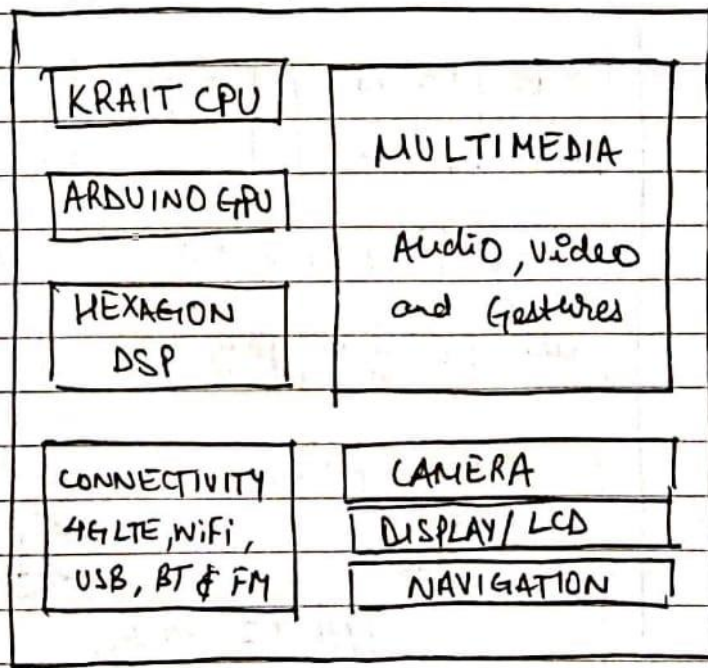 KRAIT CPU
ARDUINO GPU
HEXAGON
DSP
MULTIMEDIA
Audio, Video
and Gestures
CONNECTIVITY
4G LTE, WiFi,
USB, BT & FM
CAMERA
DISPLAY/ LCD
NAVIGATION